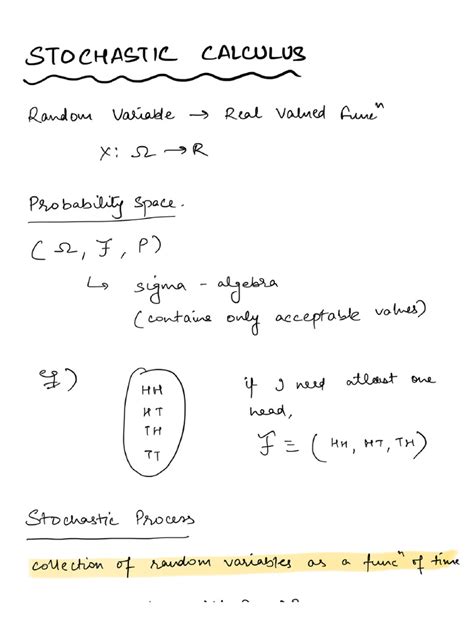 STOCHASTIC CALCULUS
Random Variable → Real Valued Funcⁿ
X: Ω → R
Probability Space.
(Ω, F, P)
↳ sigma - algebra
(contains only acceptable values)
eg)
HH
HT
TH
TT
if I need atleast one
head,
F = (HH, HT, TH)
Stochastic Process
collection of random variables as a funcⁿ of time